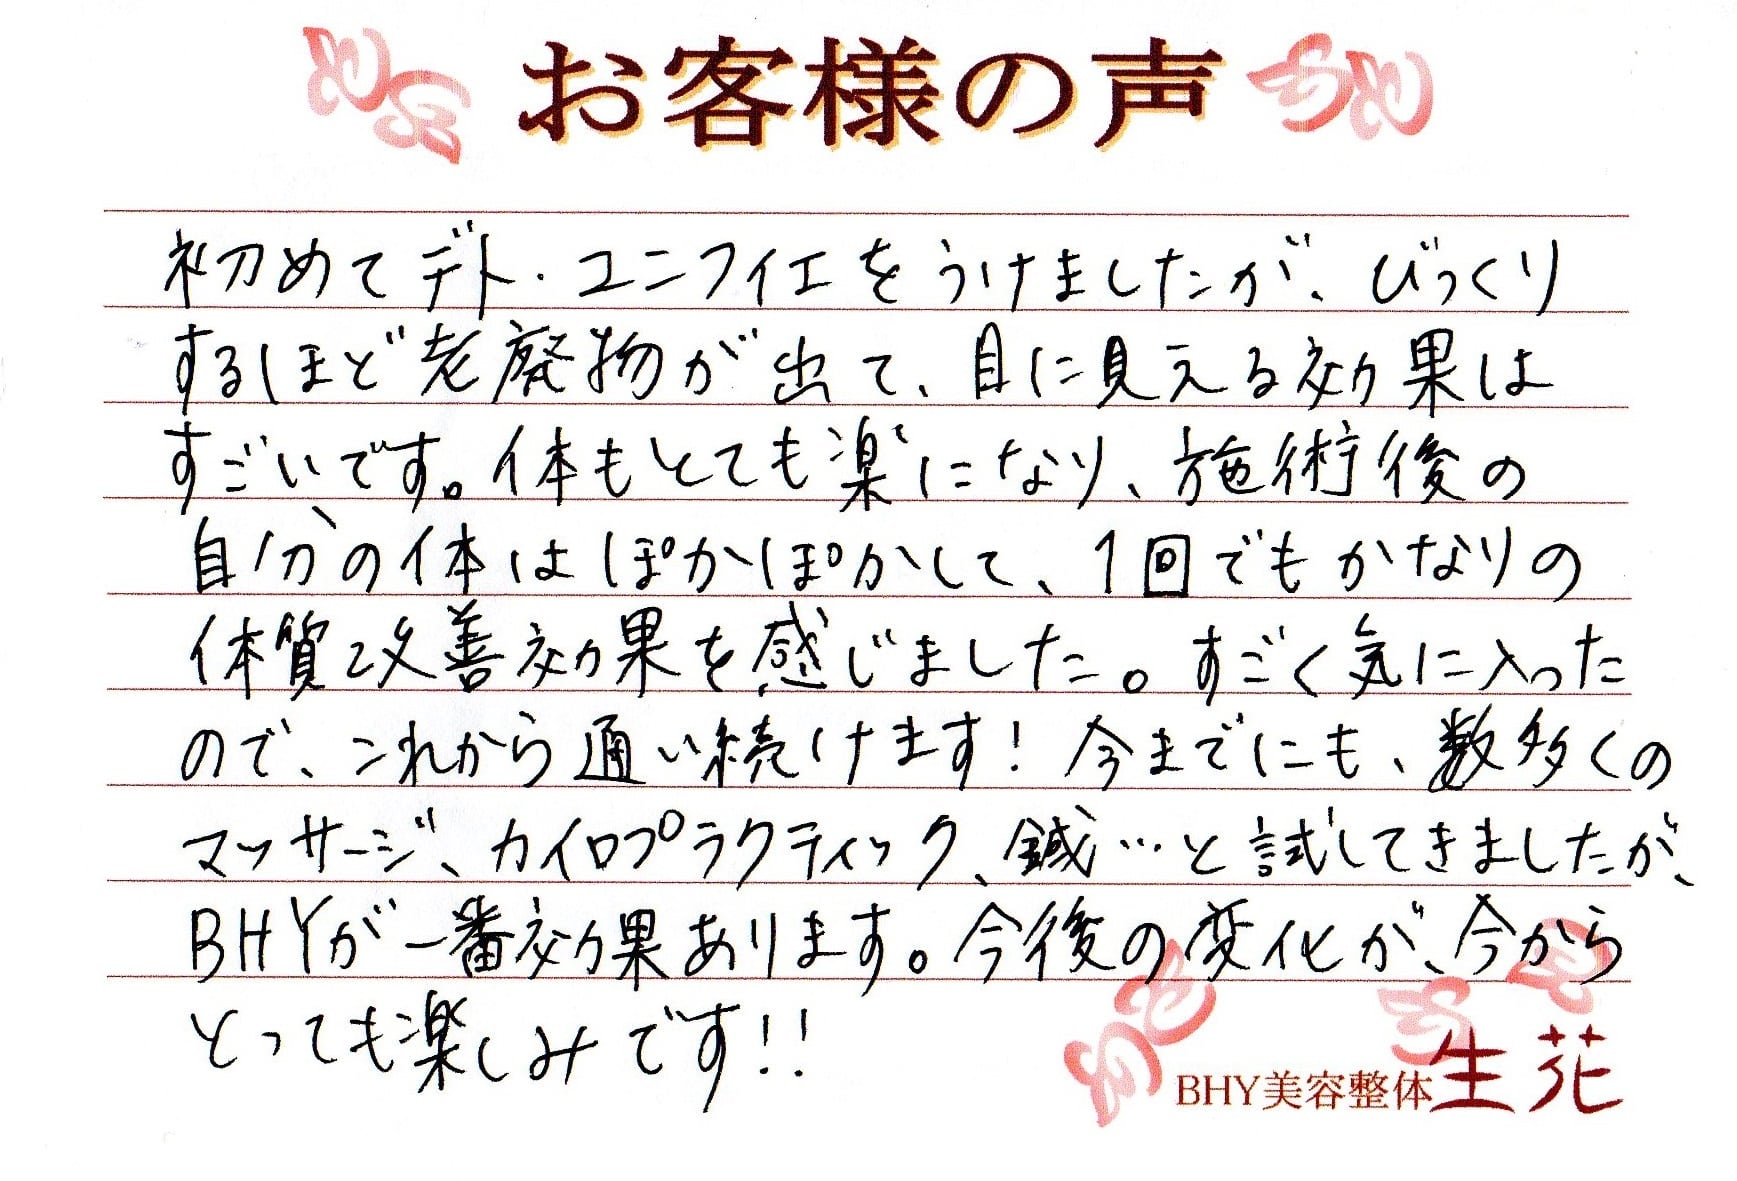 お客様の声
初めてデト・ユニフィエをうけましたが、びっくり
するほど老廃物が出て、目に見える効果は
すごいです。体もとても楽になり、施術後の
自分の体はぽかぽかして、1回でもかなりの
体質改善効果を感じました。すごく気に入った
ので、これから通い続けます!今までにも、数多くの
マッサージ、カイロプラクティック、鍼…と試してきましたが、
BHYが一番効果あります。今後の変化が、今から
とっても楽しみです!!
BHY美容整体生花